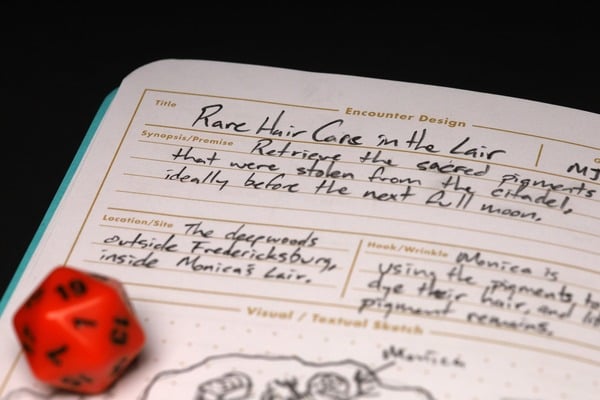 Encounter Design
Title
Rare Hair Care in the Lair
MJ
Synopsis/Premise
Retrieve the sacred pigments
that were stolen from the citadel,
ideally before the next full moon.
Location/Site
The deepwoods
outside Fredericksburg,
inside Monica's Lair.
Hook/Wrinkle
Monica is
using the pigments to
dye their hair, and
pigment remains.
Visual / Textual Sketch
Monica
19
1
7
13